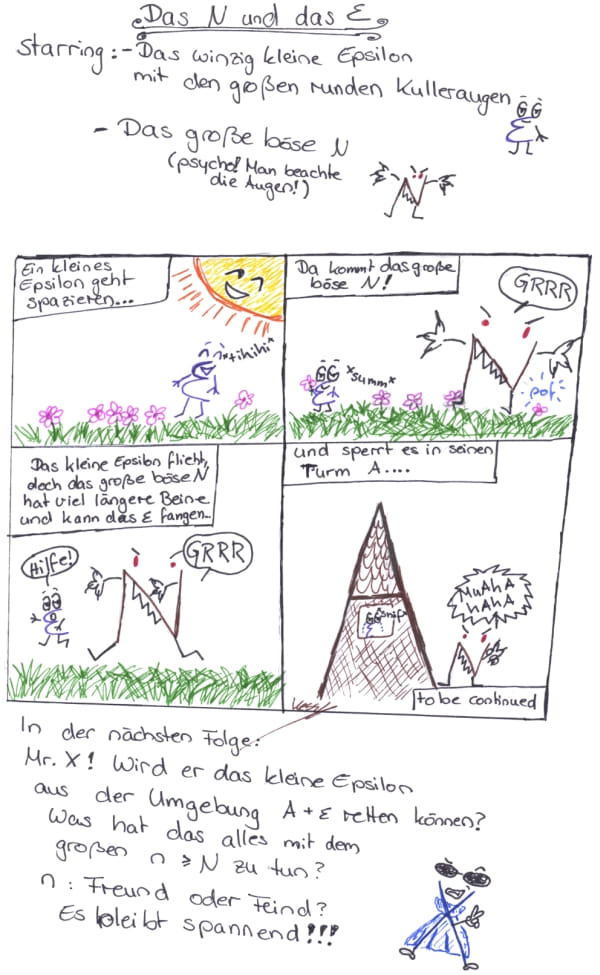 Das N und das Ɛ
Starring: - Das winzig kleine Epsilon
mit den großen runden Kulleraugen
- Das große böse N
(psycho! Man beachte
die Augen!)
Ein kleines
Epsilon geht
spazieren...
*tihihi*
Da kommt das große
böse N!
GRRR
*summ*
pof.
Das kleine Epsilon flieht,
doch das große böse N
hat viel längere Beine
und kann das Ɛ fangen...
Hilfe!
GRRR
und sperrt es in seinen
Turm A....
snif
MuAhA
hAhA
to be continued
In der nächsten Folge:
Mr. X! Wird er das kleine Epsilon
aus der Umgebung A + Ɛ retten können?
Was hat das alles mit dem
großen n ≥ N zu tun?
n: Freund oder Feind?
Es bleibt spannend!!!